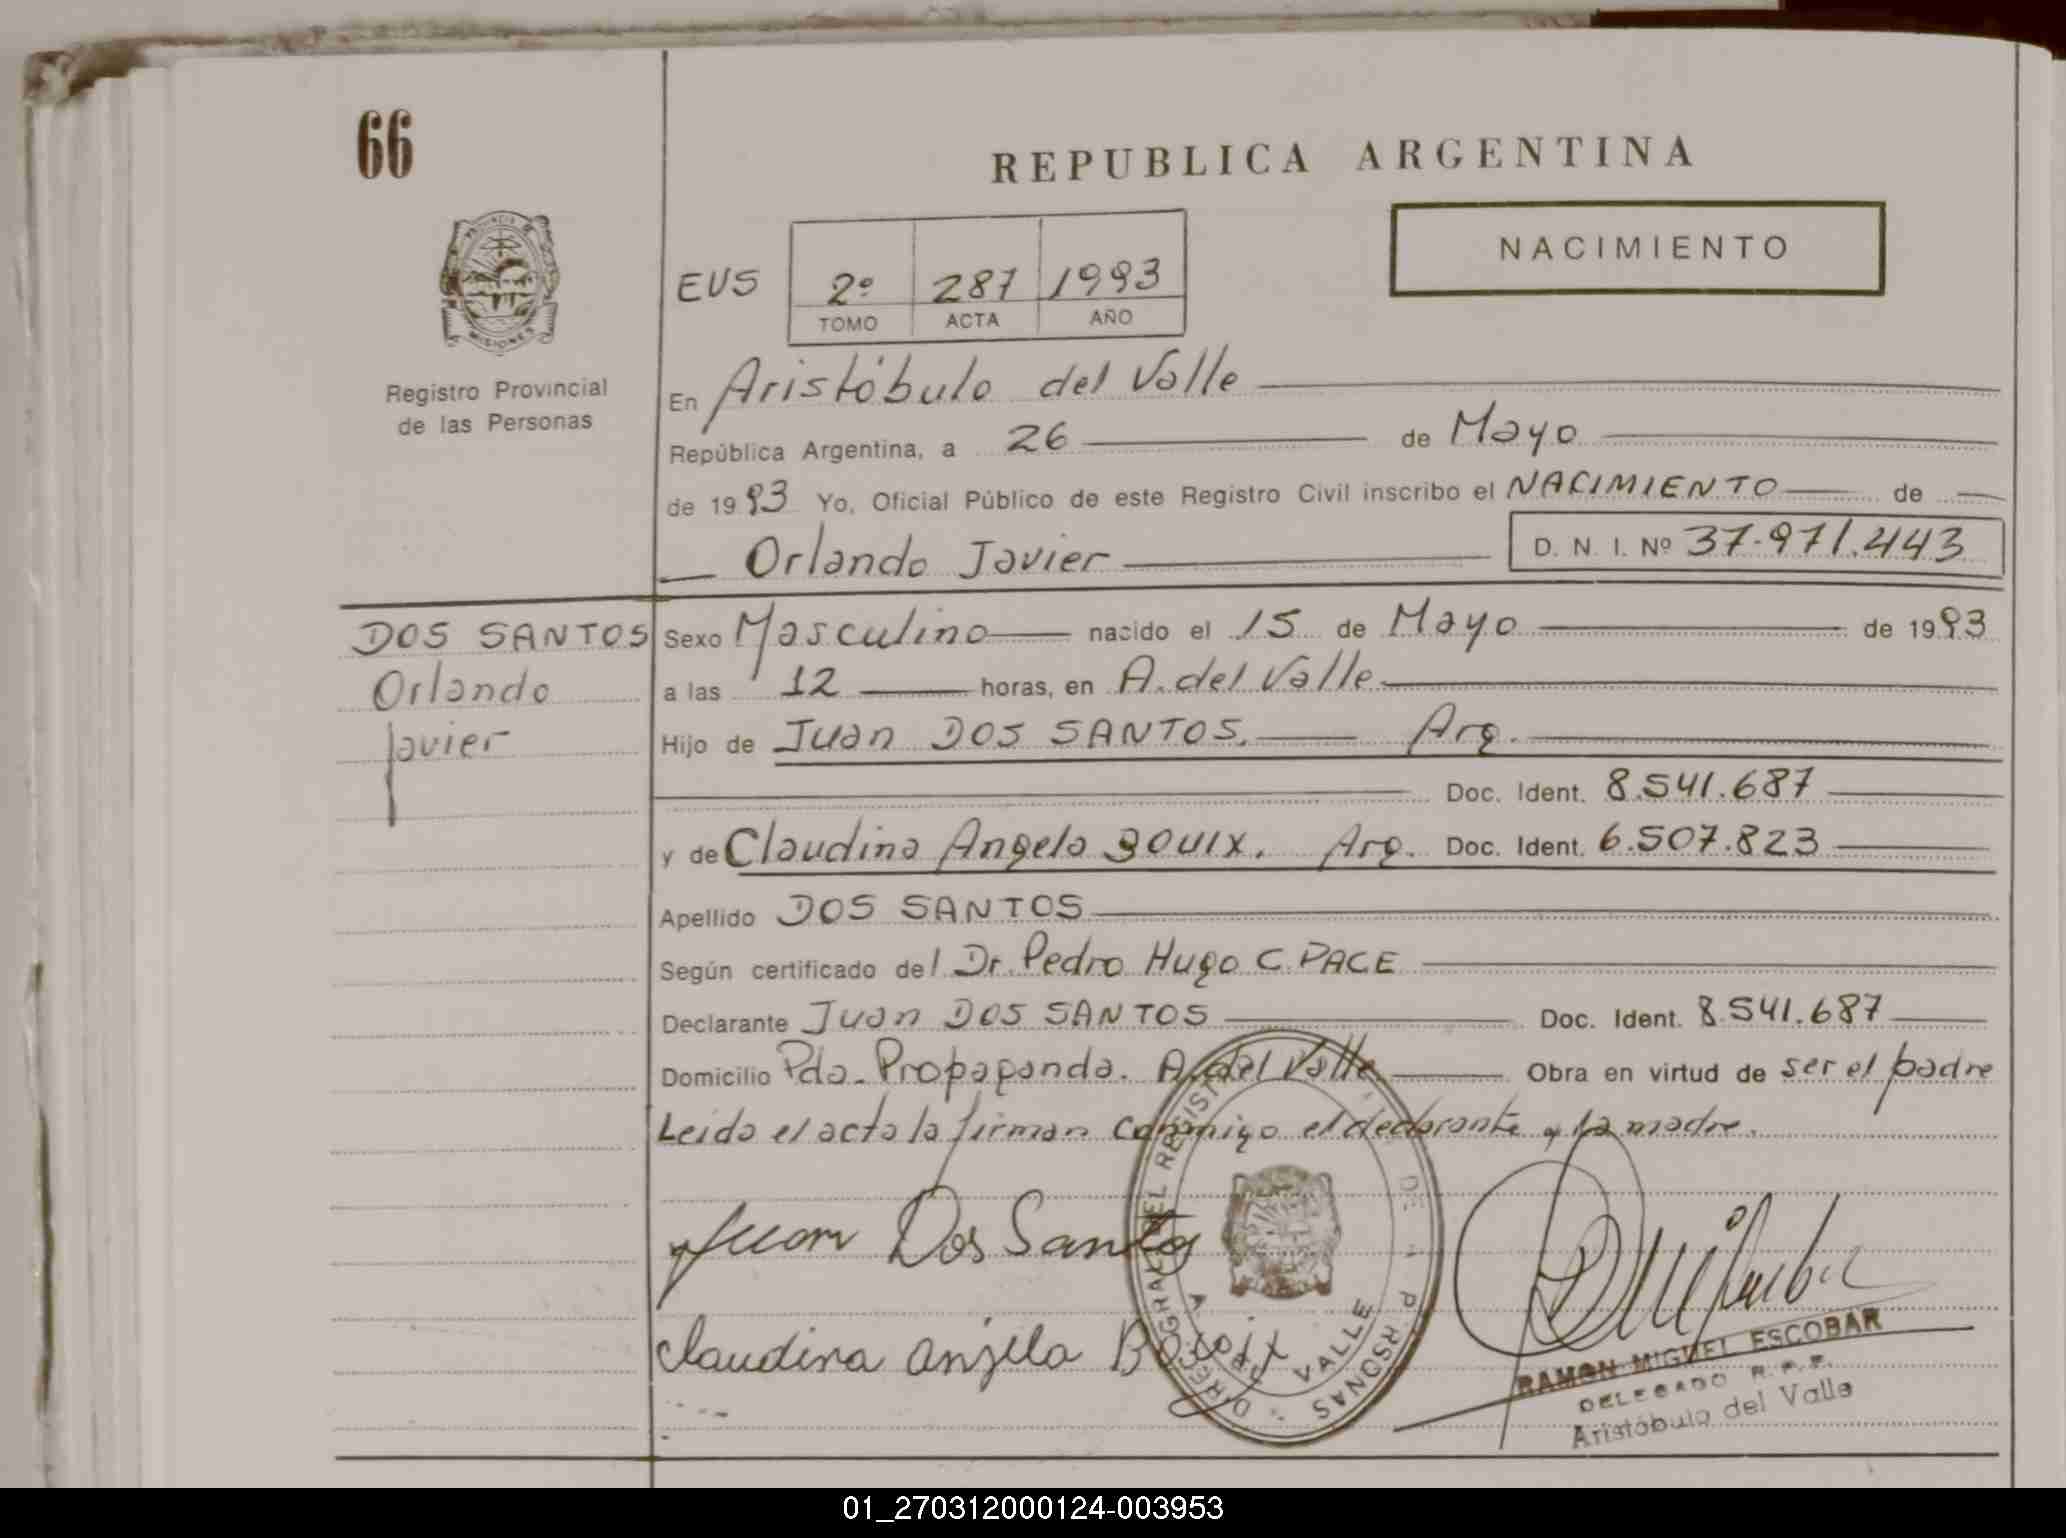 66
REPUBLICA ARGENTINA
NACIMIENTO
PROVINCIA DE
MISIONES
Registro Provincial
de las Personas
EUS
2º 287 1993
TOMO ACTA AÑO
En Aristóbulo del Valle
República Argentina, a 26 de Mayo
de 1993 Yo, Oficial Público de este Registro Civil inscribo el NACIMIENTO de
Orlando Javier D. N. I. Nº 37.971.443
DOS SANTOS
Orlando
Javier
Sexo Masculino nacido el 15 de Mayo de 1993
a las 12 horas, en A. del Valle
Hijo de Juan DOS SANTOS. Arg.
Doc. Ident. 8.541.687
y de Claudina Angela BOUIX. Arg. Doc. Ident. 6.507.823
Apellido DOS SANTOS
Según certificado del Dr. Pedro Hugo C. PACE
Declarante Juan DOS SANTOS Doc. Ident. 8.541.687
Domicilio Pda. Propaganda. A. del Valle Obra en virtud de ser el padre
Leída el acta la firman conmigo el declarante y la madre.
Juan Dos Santos
Claudina Anjela
VALLE
RAMON MIGUEL ESCOBAR
DELEGADO R.P.P.
Aristóbulo del Valle
01_270312000124-003953